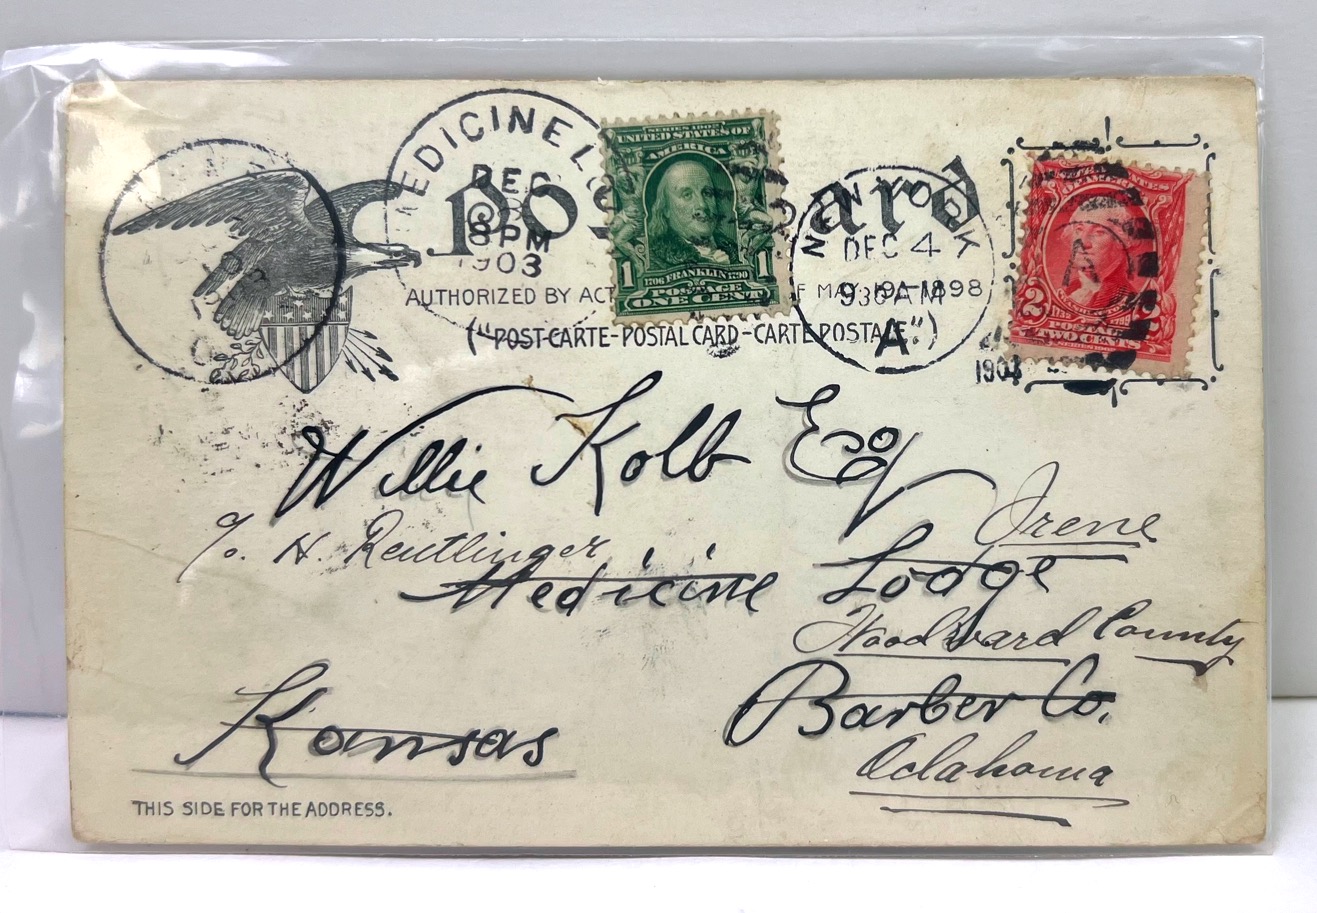 MEDICINE LO
DEC
8 PM
1903
Pos ard
NEW YORK
DEC 4
930 AM
A
1903
SERIES 1902
UNITED STATES OF
AMERICA
1 1
1706 FRANKLIN 1790
POSTAGE
ONE CENT
2 2
1732 1799
POSTAGE
TWO CENTS
SERIES 1902
A
AUTHORIZED BY ACT F MAY 19 1898
("POST CARTE-POSTAL CARD-CARTE POSTALE")
Willie Kolb Esq
Irene
℅ H. Reutlinger
Medicine Lodge
Woodward County
Kansas Barber Co.
Oclahoma
THIS SIDE FOR THE ADDRESS.